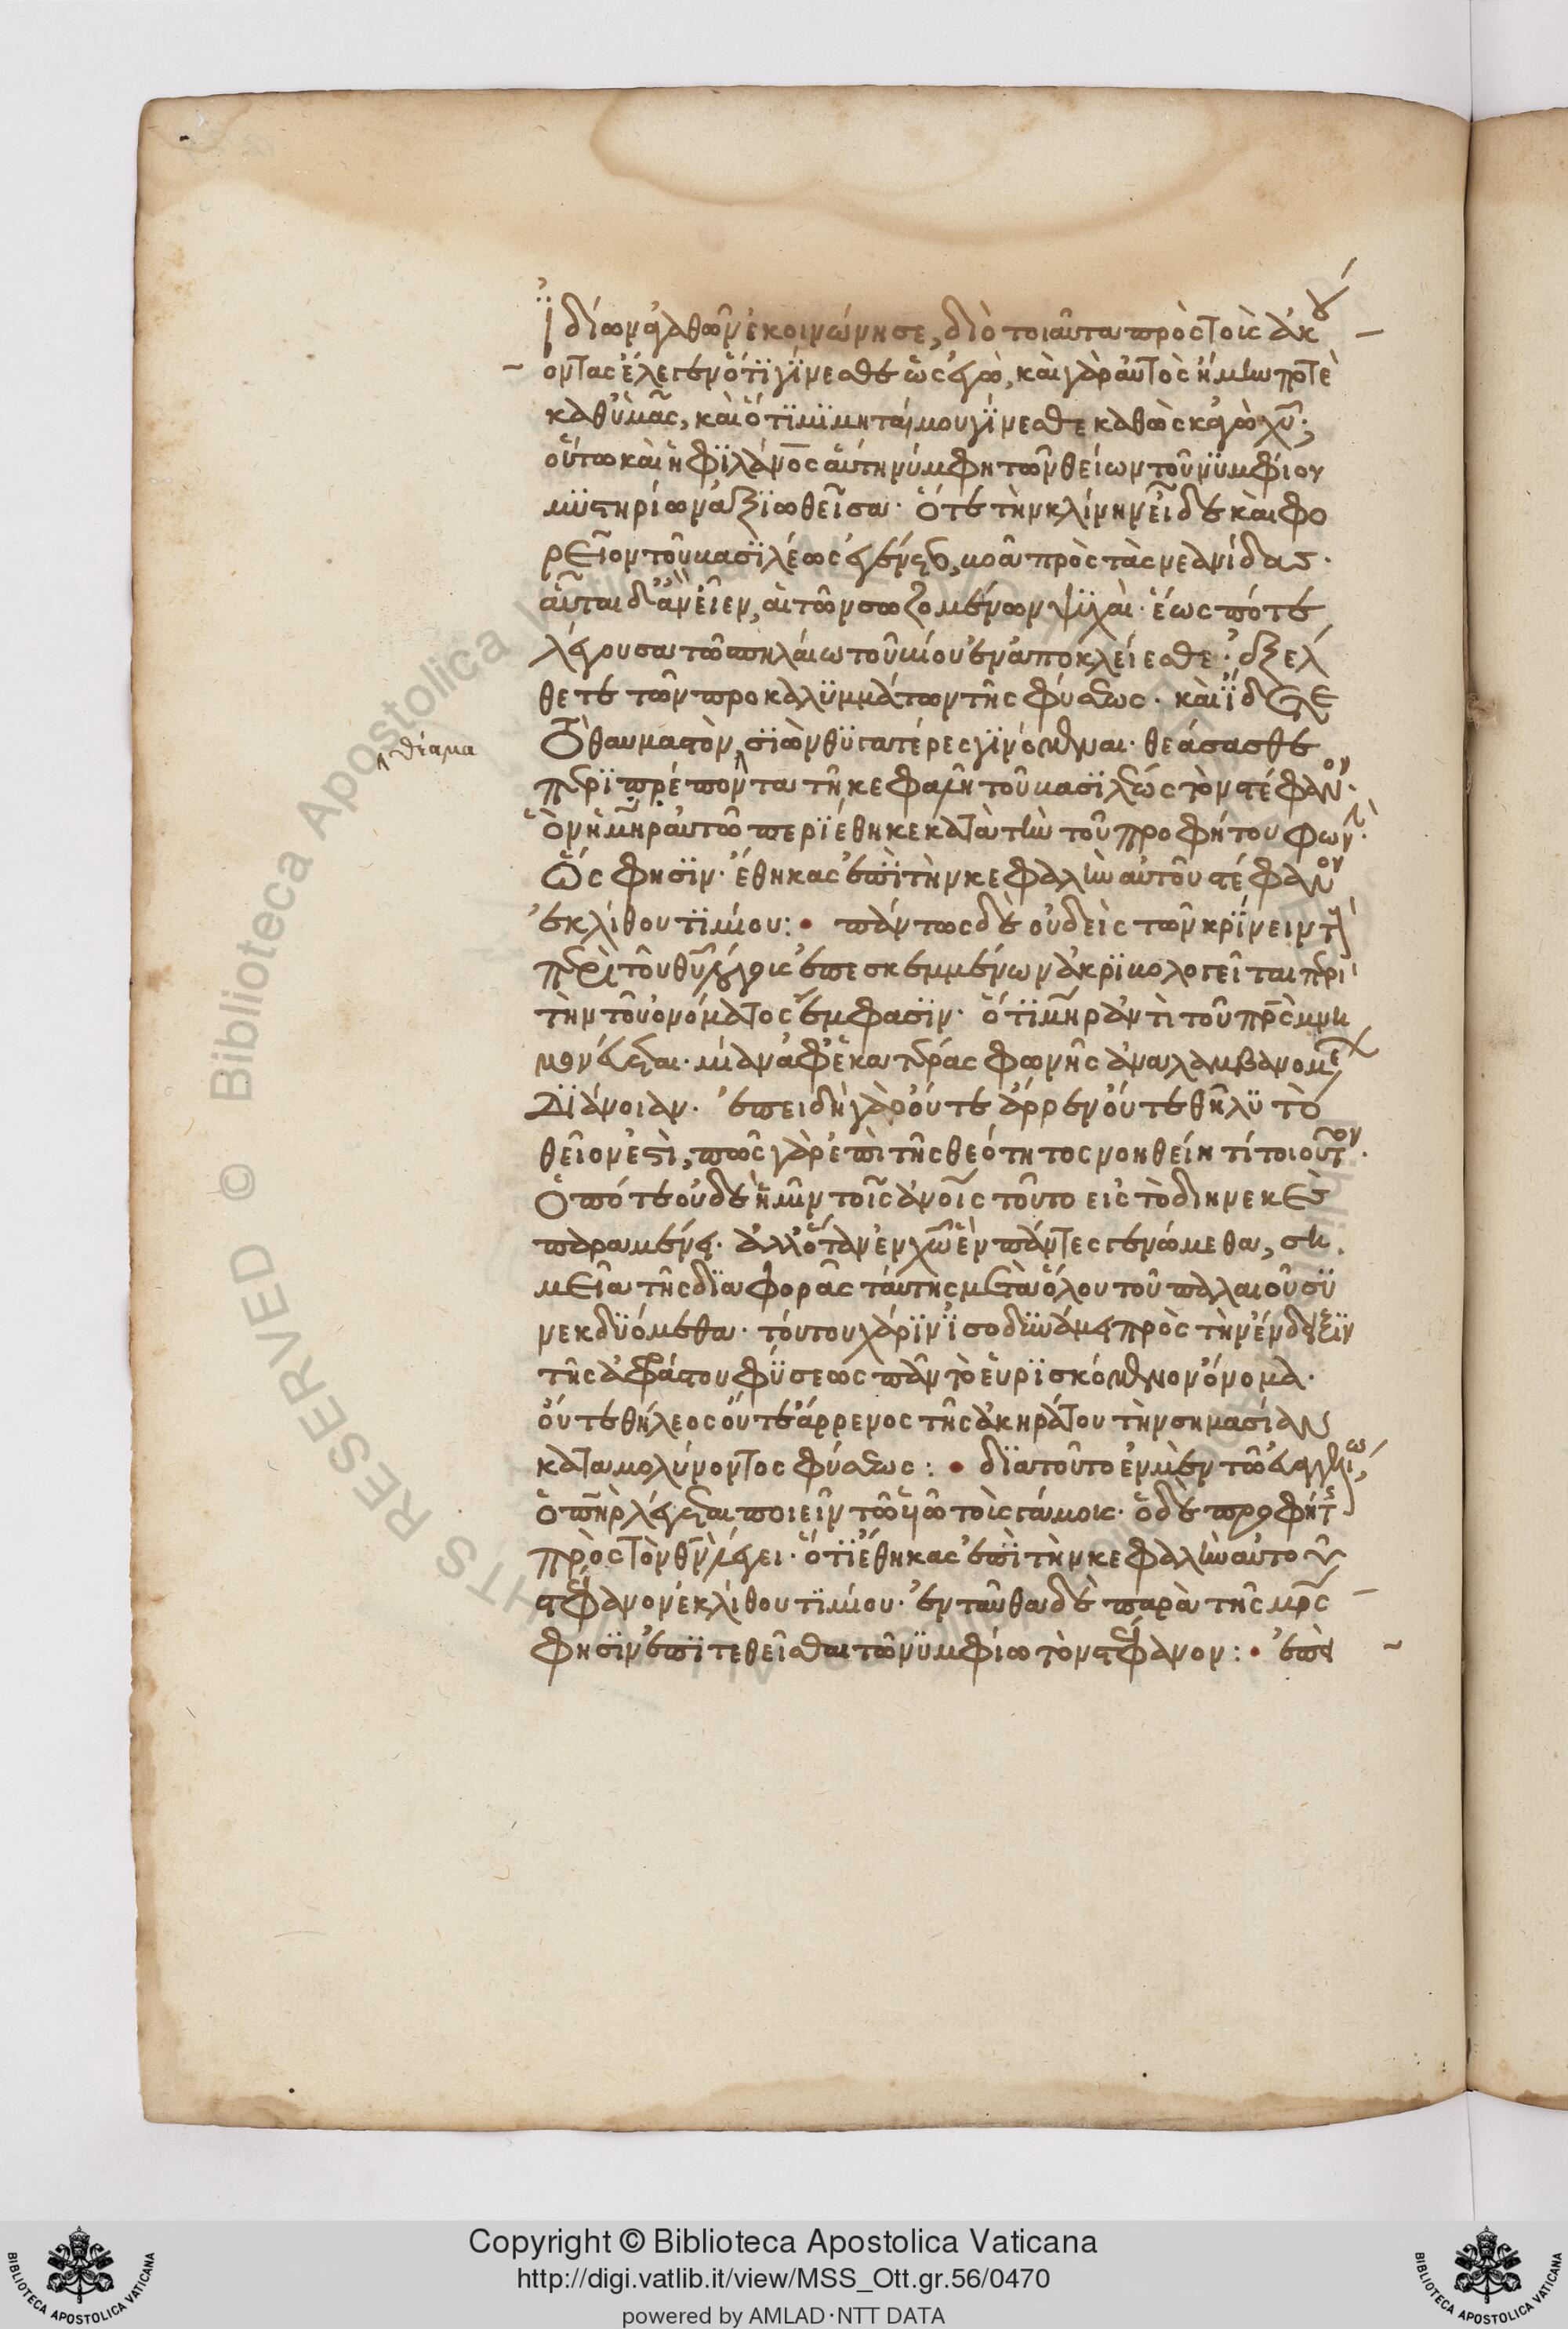 ϊδίων ἀγαθῶν ἐκοινώνησε, διὸ τοιαῦτα πρὸς τοῖς ἀκού
οντας ἔλεγεν ὅτϊ γίνεσθε ὡς ἐγὼ, καὶ γὰρ αὐτὸς ἤμην ποτὲ
καθ' ὑμᾶς, καὶ ὅτϊ μϊμηταί μου γίνεσθε καθὼς κἀγὼ χυ̅·
οὕτω καὶ ἡ φϊλάνο̅ς αὕτη νύμφη τῶν θείων τοῦ νϋμφίου
μϋστηρίων ἀξϊωθεῖσα· ὅτε τὴν κλίνην εἶδε καὶ φο
ρεῖον τοῦ βασϊλέως ἐγένετο, βοᾶ πρὸς τὰς νεάνιδας·
αὗται δ' ἂν εἶεν, αἱ τῶν σωζομένων ψϋχαὶ· ἕως πότε
λέγουσα τῶ σπηλαίω τοῦ βίου ἐναποκλείεσθε· ἐξέλ
θετε τῶν προκαλϋμμάτων τῆς φύσεως· καὶ ἴδετε
τὸ θαυμαστὸν, σϊὼν θϋγατέρες γϊνόμεναι· θεάσασθε
θέαμα
περϊπρέποντα τῆ κεφαλῆ τοῦ βασϊλέως τὸν στέφανον·
ὃν ἡ μη̅ρ αὐτῶ περϊέθηκε κατὰ τὴν τοῦ προφήτου φων·
ὥς φησϊν· ἔθηκας ἐπϊ τὴν κεφαλὴν αὐτοῦ στέφανον
ἐκ λίθου τϊμίου: • πάντως δὲ οὐδεὶς τῶν κρϊνειν τὰ
περὶ τοῦ θυ̅ λόγοις ἐπεσκεμμένων ἀκρϊβολογεῖται περὶ
τὴν τοῦ ὀνόματος ἔμφασϊν· ὅτϊ μη̅ρ ἀντὶ τοῦ πρ̅ς μνη
μονεύεται· μίαν ἀφ' ἑκατέρας φωνῆς ἀναλαμβάνομεν
διάνοιαν· ἐπειδὴ γὰρ οὔτε ἄρρεν οὔτε θῆλϋ τὸ
θεῖον ἐστὶ, πῶς γὰρ ἐπὶ τῆς θεότητος νοηθείη τί τοιοῦτον·
ὁπότε οὐδὲ ἡμῖν τοῖς ἀνοῖς τοῦτο εἰς τὸ διηνεκὲς
παραμένει· ἀλλ' ὅταν ἐν χω̅ ἓν πάντες γενώμεθα, ση
μεῖα τῆς δϊαφορᾶς ταύτης μετὰ ὅλου τοῦ παλαιοῦ σϋ
νεκδϋόμεθα· τούτου χάρϊν ϊσοδϋναμεῖ πρὸς τὴν ἔνδειξϊν
τῆς ἀφράστου φϋσεως πᾶν τὸ εὑρϊσκόμενον ὄνομα·
οὔτε θήλεος οὔτε ἄρρενος τῆς ἀκηράτου τὴν σημασίαν
καταμολύνοντος φύσεως: • δϊατοῦτο ἐν μὲν τῶ εὐαγγελίω,
ὁ πη̅ρ λέγεται ποιεῖν τῶ υἱῶ τοῖς γάμοις· ὁ δὲ προφήτης
πρὸς τὸν θν̅ λέγει· ὅτϊ ἔθηκας ἐπϊ τὴν κεφαλὴν αὐτοῦ
στέφανον ἐκ λίθου τϊμίου· ἐνταῦθα δὲ παρὰ τῆς μρ̅ς
φησϊν ἐπϊτεθεῖσθαι τῶ νϋμφίω τὸν στέφανον: • ἐπεὶ
Copyright © Biblioteca Apostolica Vaticana
http://digi.vatlib.it/view/MSS_Ott.gr.56/0470
powered by AMLAD·NTT DATA